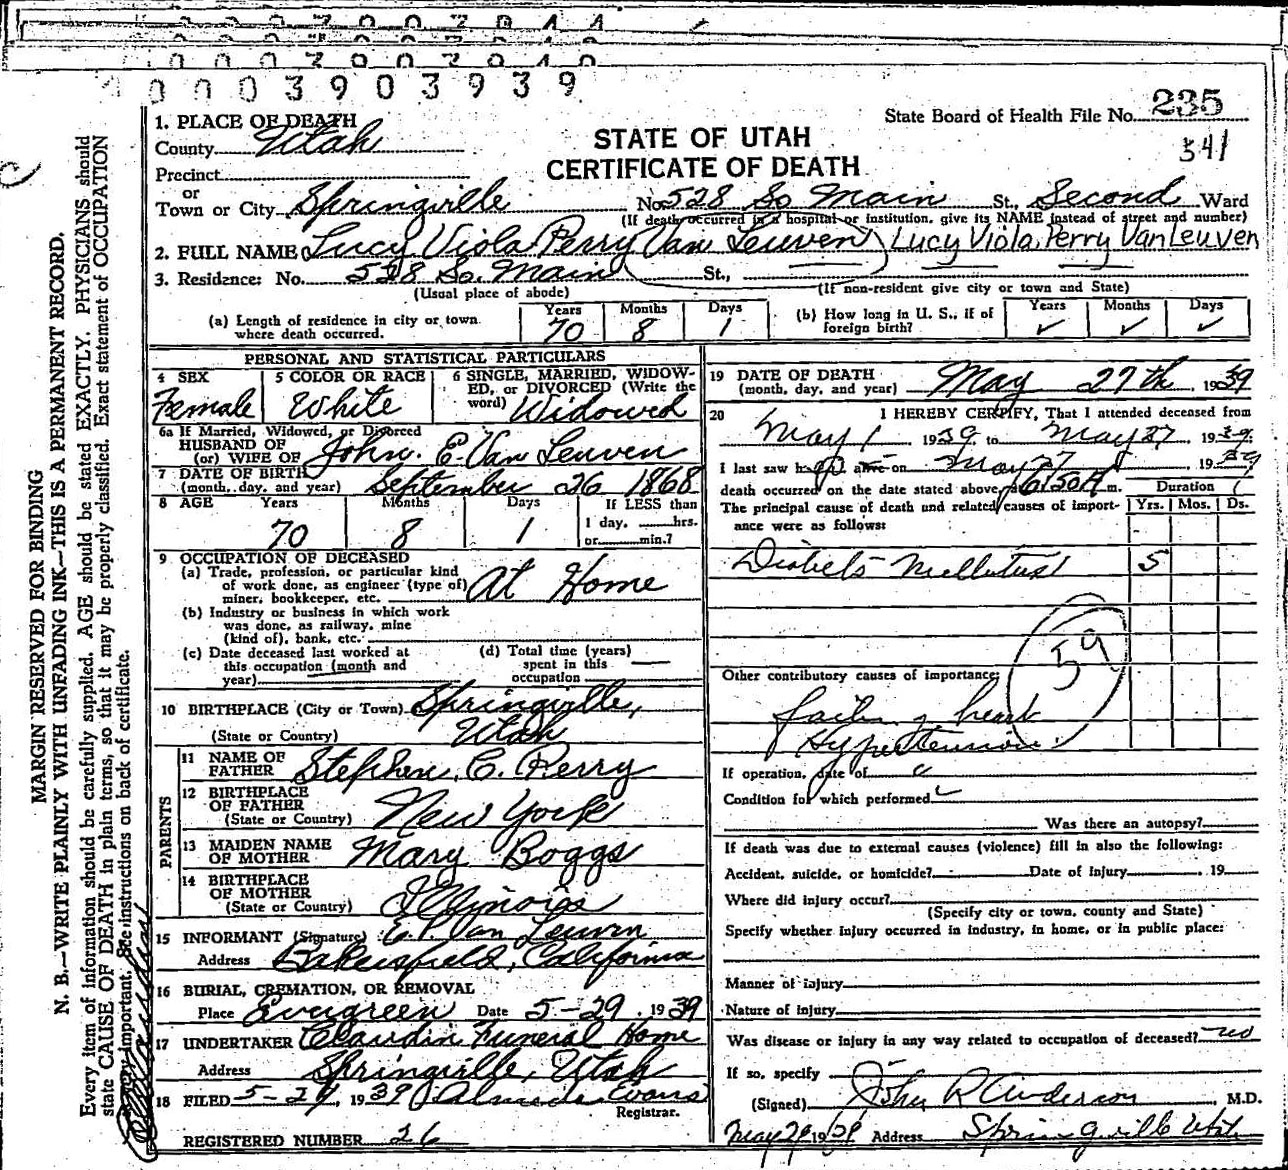 0 0 0 3 9 0 3 9 3 9
State Board of Health File No. 235
341
STATE OF UTAH
CERTIFICATE OF DEATH
1. PLACE OF DEATH
County Utah
Precinct
or
Town or City Springville No. 528 So Main St., Second Ward
(If death occurred in a hospital or institution, give its NAME instead of street and number)
2. FULL NAME Lucy Viola Perry Van Leuven Lucy Viola Perry VanLeuven
3. Residence: No. 528 So. Main St.,
(Usual place of abode) (If non-resident give city or town and State)
(a) Length of residence in city or town where death occurred. Years 70 Months 8 Days 1
(b) How long in U. S., if of foreign birth? Years ✓ Months ✓ Days ✓
PERSONAL AND STATISTICAL PARTICULARS
4 SEX Female
5 COLOR OR RACE White
6 SINGLE, MARRIED, WIDOW-
ED, or DIVORCED (Write the
word) Widowed
6a If Married, Widowed, or Divorced
HUSBAND OF
(or) WIFE OF John. E. Van Leuven
7 DATE OF BIRTH
(month, day, and year) September 26 1868
8 AGE Years 70 Months 8 Days 1
If LESS than
1 day, ____hrs.
or____min.?
9 OCCUPATION OF DECEASED
(a) Trade, profession, or particular kind
of work done, as engineer (type of)
miner, bookkeeper, etc. At Home
(b) Industry or business in which work
was done, as railway, mine
(kind of), bank, etc.
(c) Date deceased last worked at
this occupation (month and
year)
(d) Total time (years)
spent in this
occupation
10 BIRTHPLACE (City or Town) Springville,
(State or Country) Utah
PARENTS
11 NAME OF
FATHER Stephen. C. Perry
12 BIRTHPLACE
OF FATHER
(State or Country) New York
13 MAIDEN NAME
OF MOTHER Mary Boggs
14 BIRTHPLACE
OF MOTHER
(State or Country) Illinois
15 INFORMANT (Signature) E. P. Van Leuven
Address Bakersfield, California
16 BURIAL, CREMATION, OR REMOVAL
Place Evergreen Date 5-29, 1939
17 UNDERTAKER Claudin Funeral Home
Address Springville, Utah
18 FILED 5-29, 1939 Evans
Registrar.
REGISTERED NUMBER 26
19 DATE OF DEATH
(month, day, and year) May 27th, 1939
20 I HEREBY CERTIFY, That I attended deceased from
May 1 1939, to May 27, 1939.
I last saw her alive on May 27, 1939
death occurred on the date stated above, at 6:30 A m.
Duration
The principal cause of death and related causes of import-
ance were as follows:
Yrs. Mos. Ds.
Diabets Mellitus 5
59
Other contributory causes of importance:
heart
Hypertension.
If operation, date of
Condition for which performed
Was there an autopsy?
If death was due to external causes (violence) fill in also the following:
Accident, suicide, or homicide? Date of injury , 19
Where did injury occur?
(Specify city or town, county and State)
Specify whether injury occurred in industry, in home, or in public place:
Manner of injury
Nature of injury
Was disease or injury in any way related to occupation of deceased? no
If so, specify
(Signed) John R Anderson, M.D.
May 29 1939 Address Springville Utah
MARGIN RESERVED FOR BINDING
N. B.—WRITE PLAINLY WITH UNFADING INK—THIS IS A PERMANENT RECORD.
Every item of information should be carefully supplied. AGE should be stated EXACTLY. PHYSICIANS should
state CAUSE OF DEATH in plain terms, so that it may be properly classified. Exact statement of OCCUPATION
important. See instructions on back of certificate.